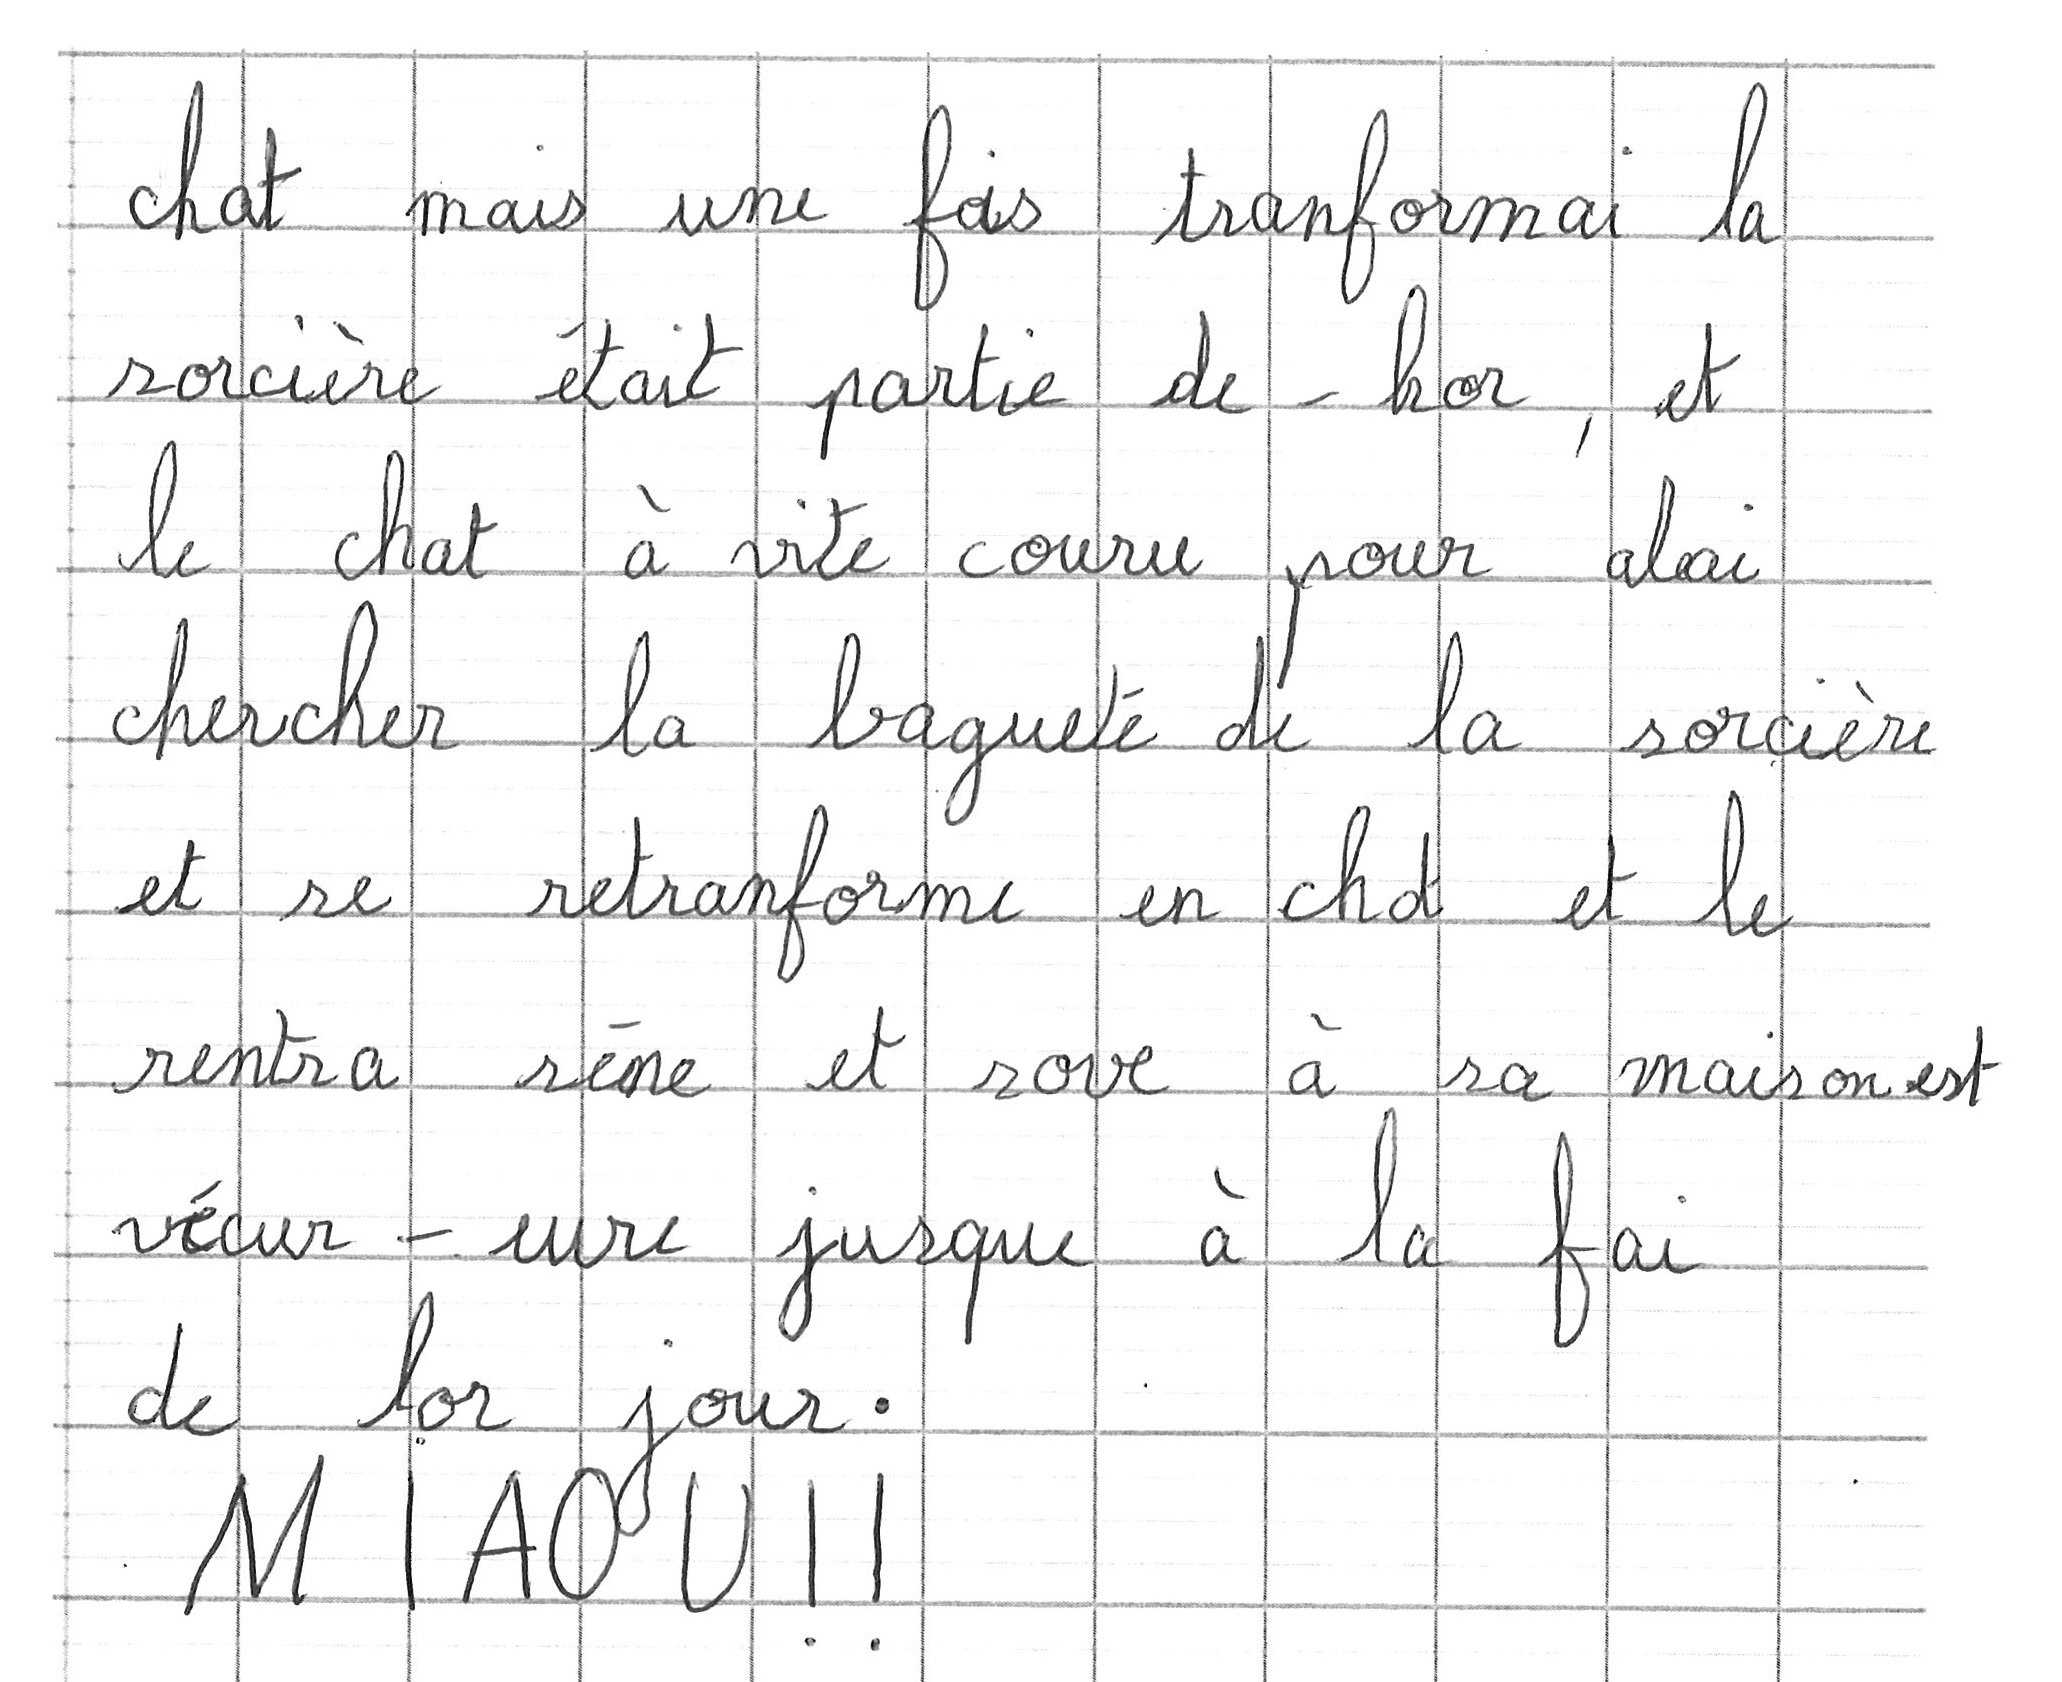 chat mais une fois tranformai la
sorcière était partie de-hor, et
le chat à vite couru pour alai
chercher la bagueté de la sorcière
et se retranforme en chat et le
rentra sēne et sove à sa maison est
vécur-eure jusque à la fai
de lor jour.
MIAOU!!